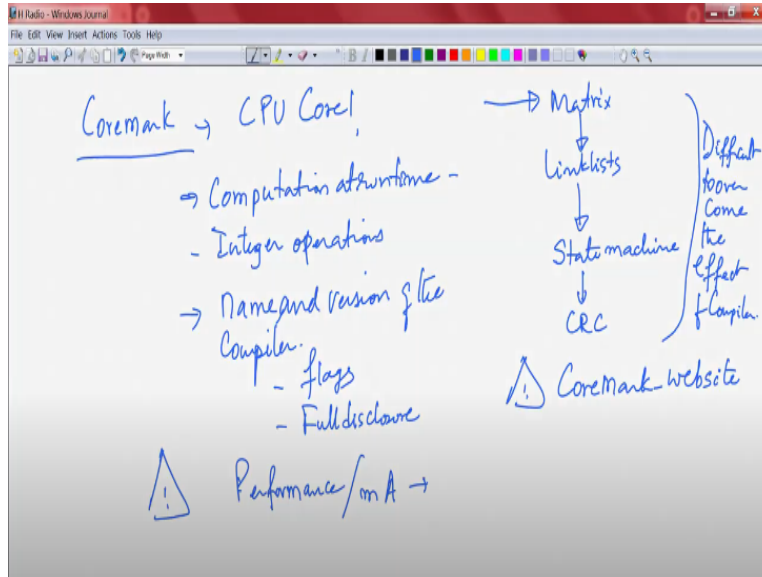 H Radio - Windows Journal
File Edit View Insert Actions Tools Help
Page Width
Coremark → CPU Core!
⇒ Computation at runtime -
- Integer operations
→ Name and version of the
Compiler.
- flags
- Full disclosure
! Performance/mA →
→ Matrix
↓
Linklists
↓
State machine
↓
CRC
Difficult
to over
come
the
effect
of Compiler.
! CoreMark_website